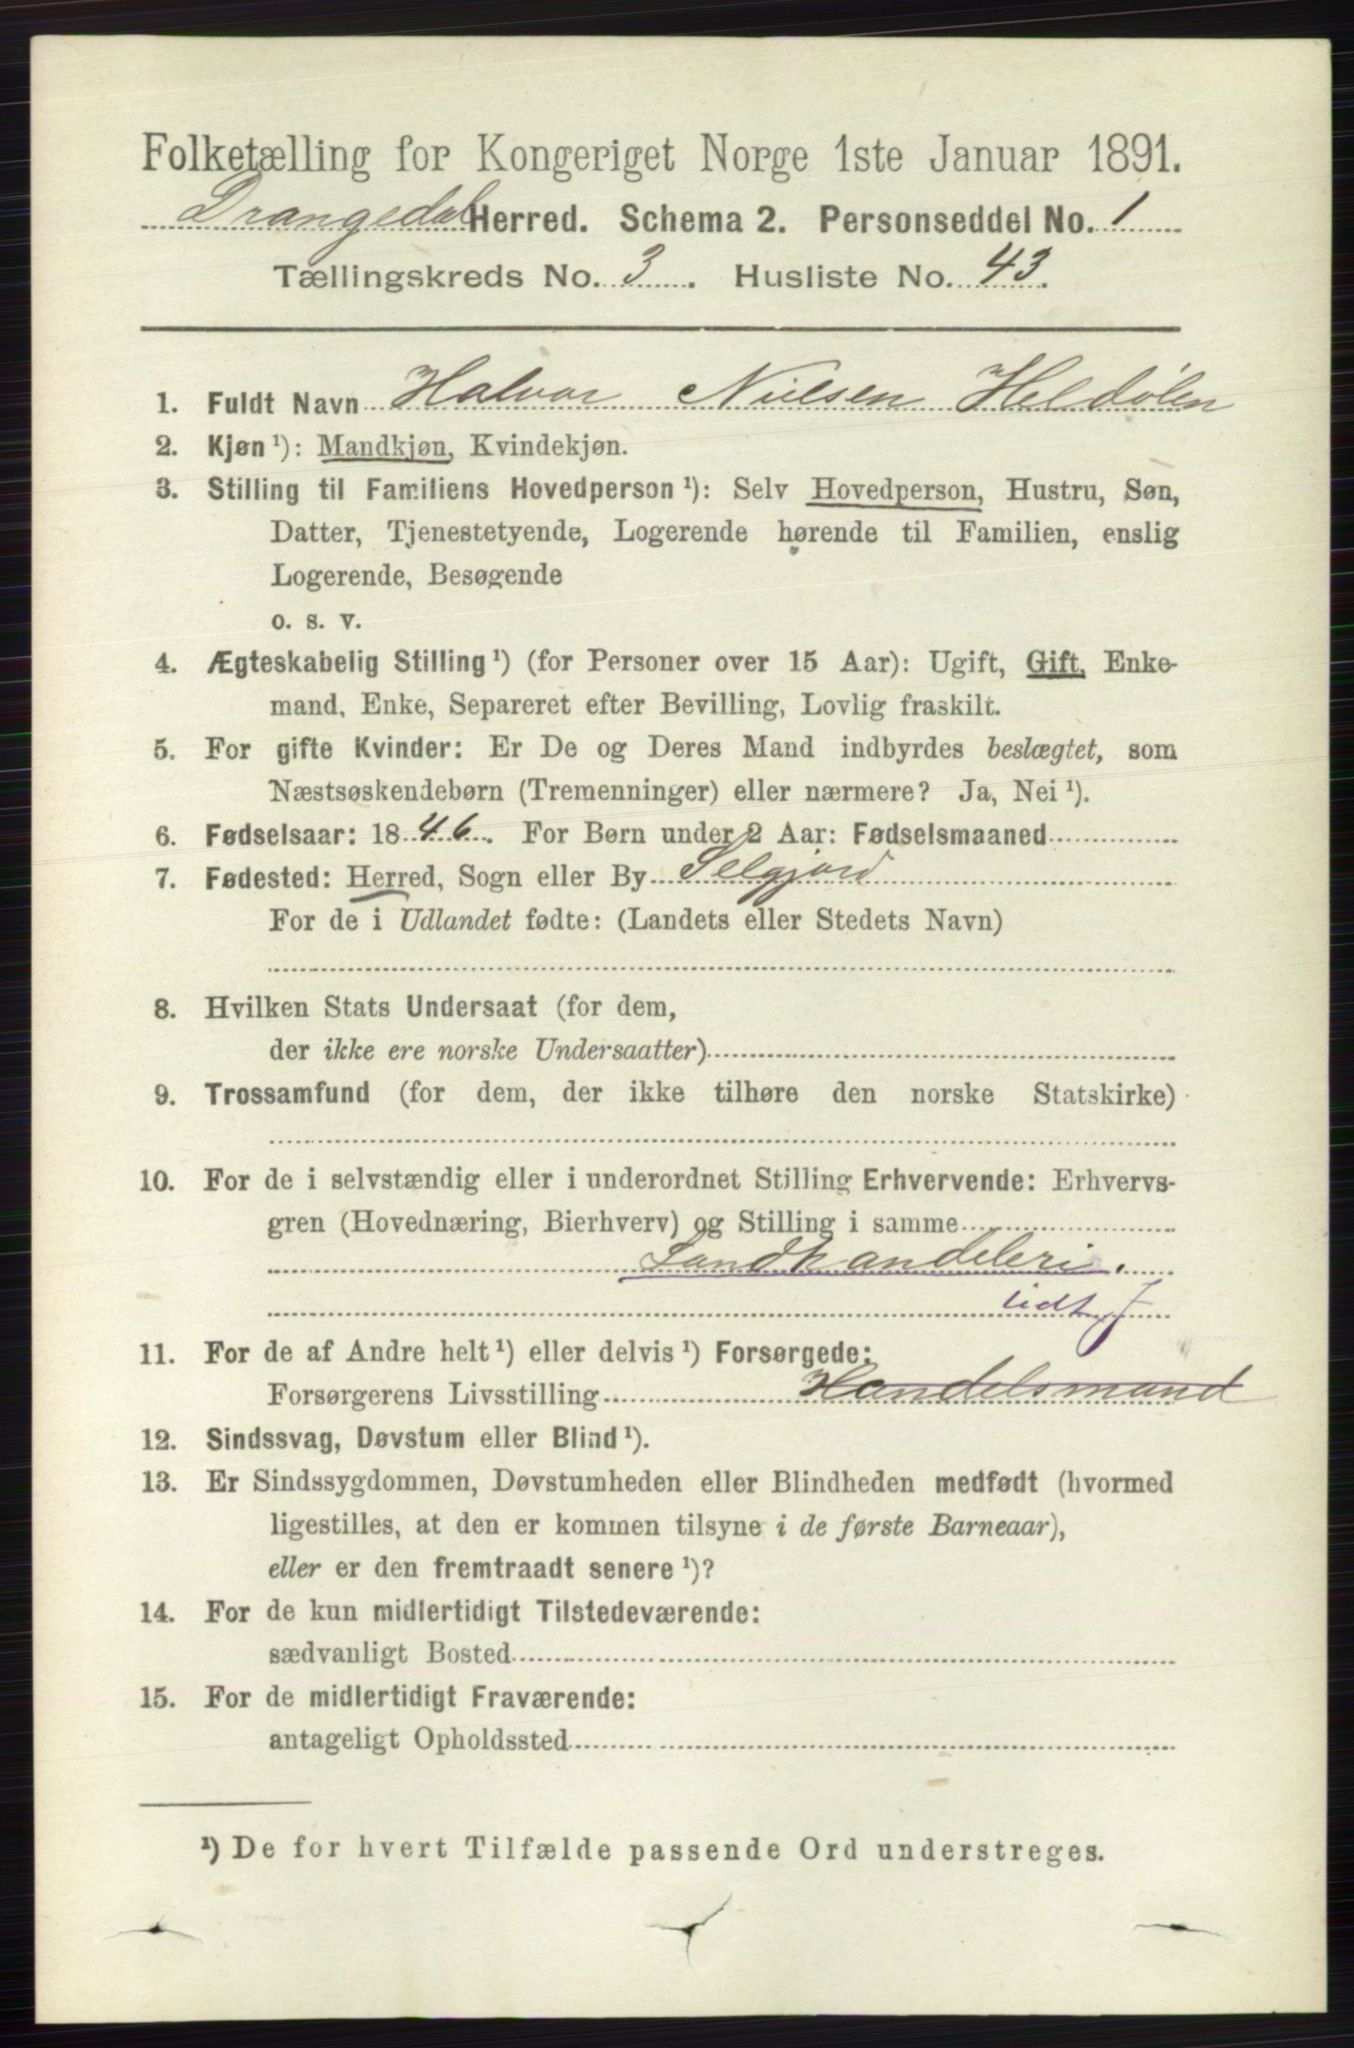 Folketælling for Kongeriget Norge 1ste Januar 1891.
Drangedal Herred. Schema 2. Personseddel No. 1
Tællingskreds No. 3. Husliste No. 43.
1. Fuldt Navn Halvor Nielsen Heldølen
2. Kjøn ¹): Mandkjøn, Kvindekjøn.
3. Stilling til Familiens Hovedperson ¹): Selv Hovedperson, Hustru, Søn,
Datter, Tjenestetyende, Logerende hørende til Familien, enslig
Logerende, Besøgende
o. s. v.
4. Ægteskabelig Stilling ¹) (for Personer over 15 Aar): Ugift, Gift, Enke-
mand, Enke, Separeret efter Bevilling, Lovlig fraskilt.
5. For gifte Kvinder: Er De og Deres Mand indbyrdes beslægtet, som
Næstsøskendebørn (Tremenninger) eller nærmere? Ja, Nei ¹).
6. Fødselsaar: 1846. For Børn under 2 Aar: Fødselsmaaned
7. Fødested: Herred, Sogn eller By Selgjord
For de i Udlandet fødte: (Landets eller Stedets Navn)
8. Hvilken Stats Undersaat (for dem,
der ikke ere norske Undersaatter)
9. Trossamfund (for dem, der ikke tilhøre den norske Statskirke)
10. For de i selvstændig eller i underordnet Stilling Erhvervende: Erhvervs-
gren (Hovednæring, Bierhverv) og Stilling i samme
Landhandeleri.
11. For de af Andre helt ¹) eller delvis ¹) Forsørgede:
Forsørgerens Livsstilling Handelsmand
12. Sindssvag, Døvstum eller Blind ¹).
13. Er Sindssygdommen, Døvstumheden eller Blindheden medfødt (hvormed
ligestilles, at den er kommen tilsyne i de første Barneaar),
eller er den fremtraadt senere ¹)?
14. For de kun midlertidigt Tilstedeværende:
sædvanligt Bosted
15. For de midlertidigt Fraværende:
antageligt Opholdssted
¹) De for hvert Tilfælde passende Ord understreges.